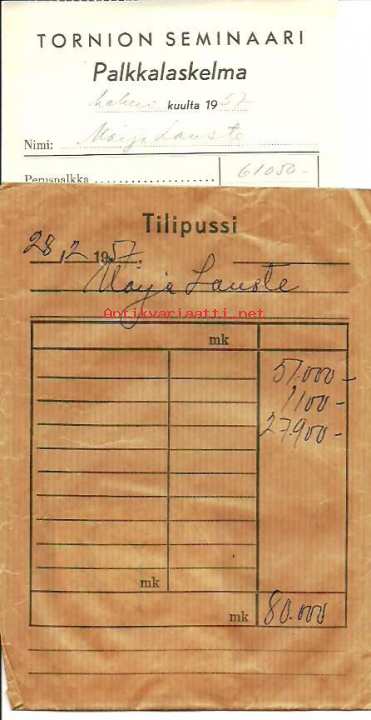 TORNION SEMINAARI
Palkkalaskelma
helmi kuulta 1957
Nimi: Maija Lauste
Peruspalkka .................... 61050-
Tilipussi
28/2 1957.
Maija Lauste
Antikvariaatti.net
mk
51.000-
1100-
27.900-
mk
mk 80.000